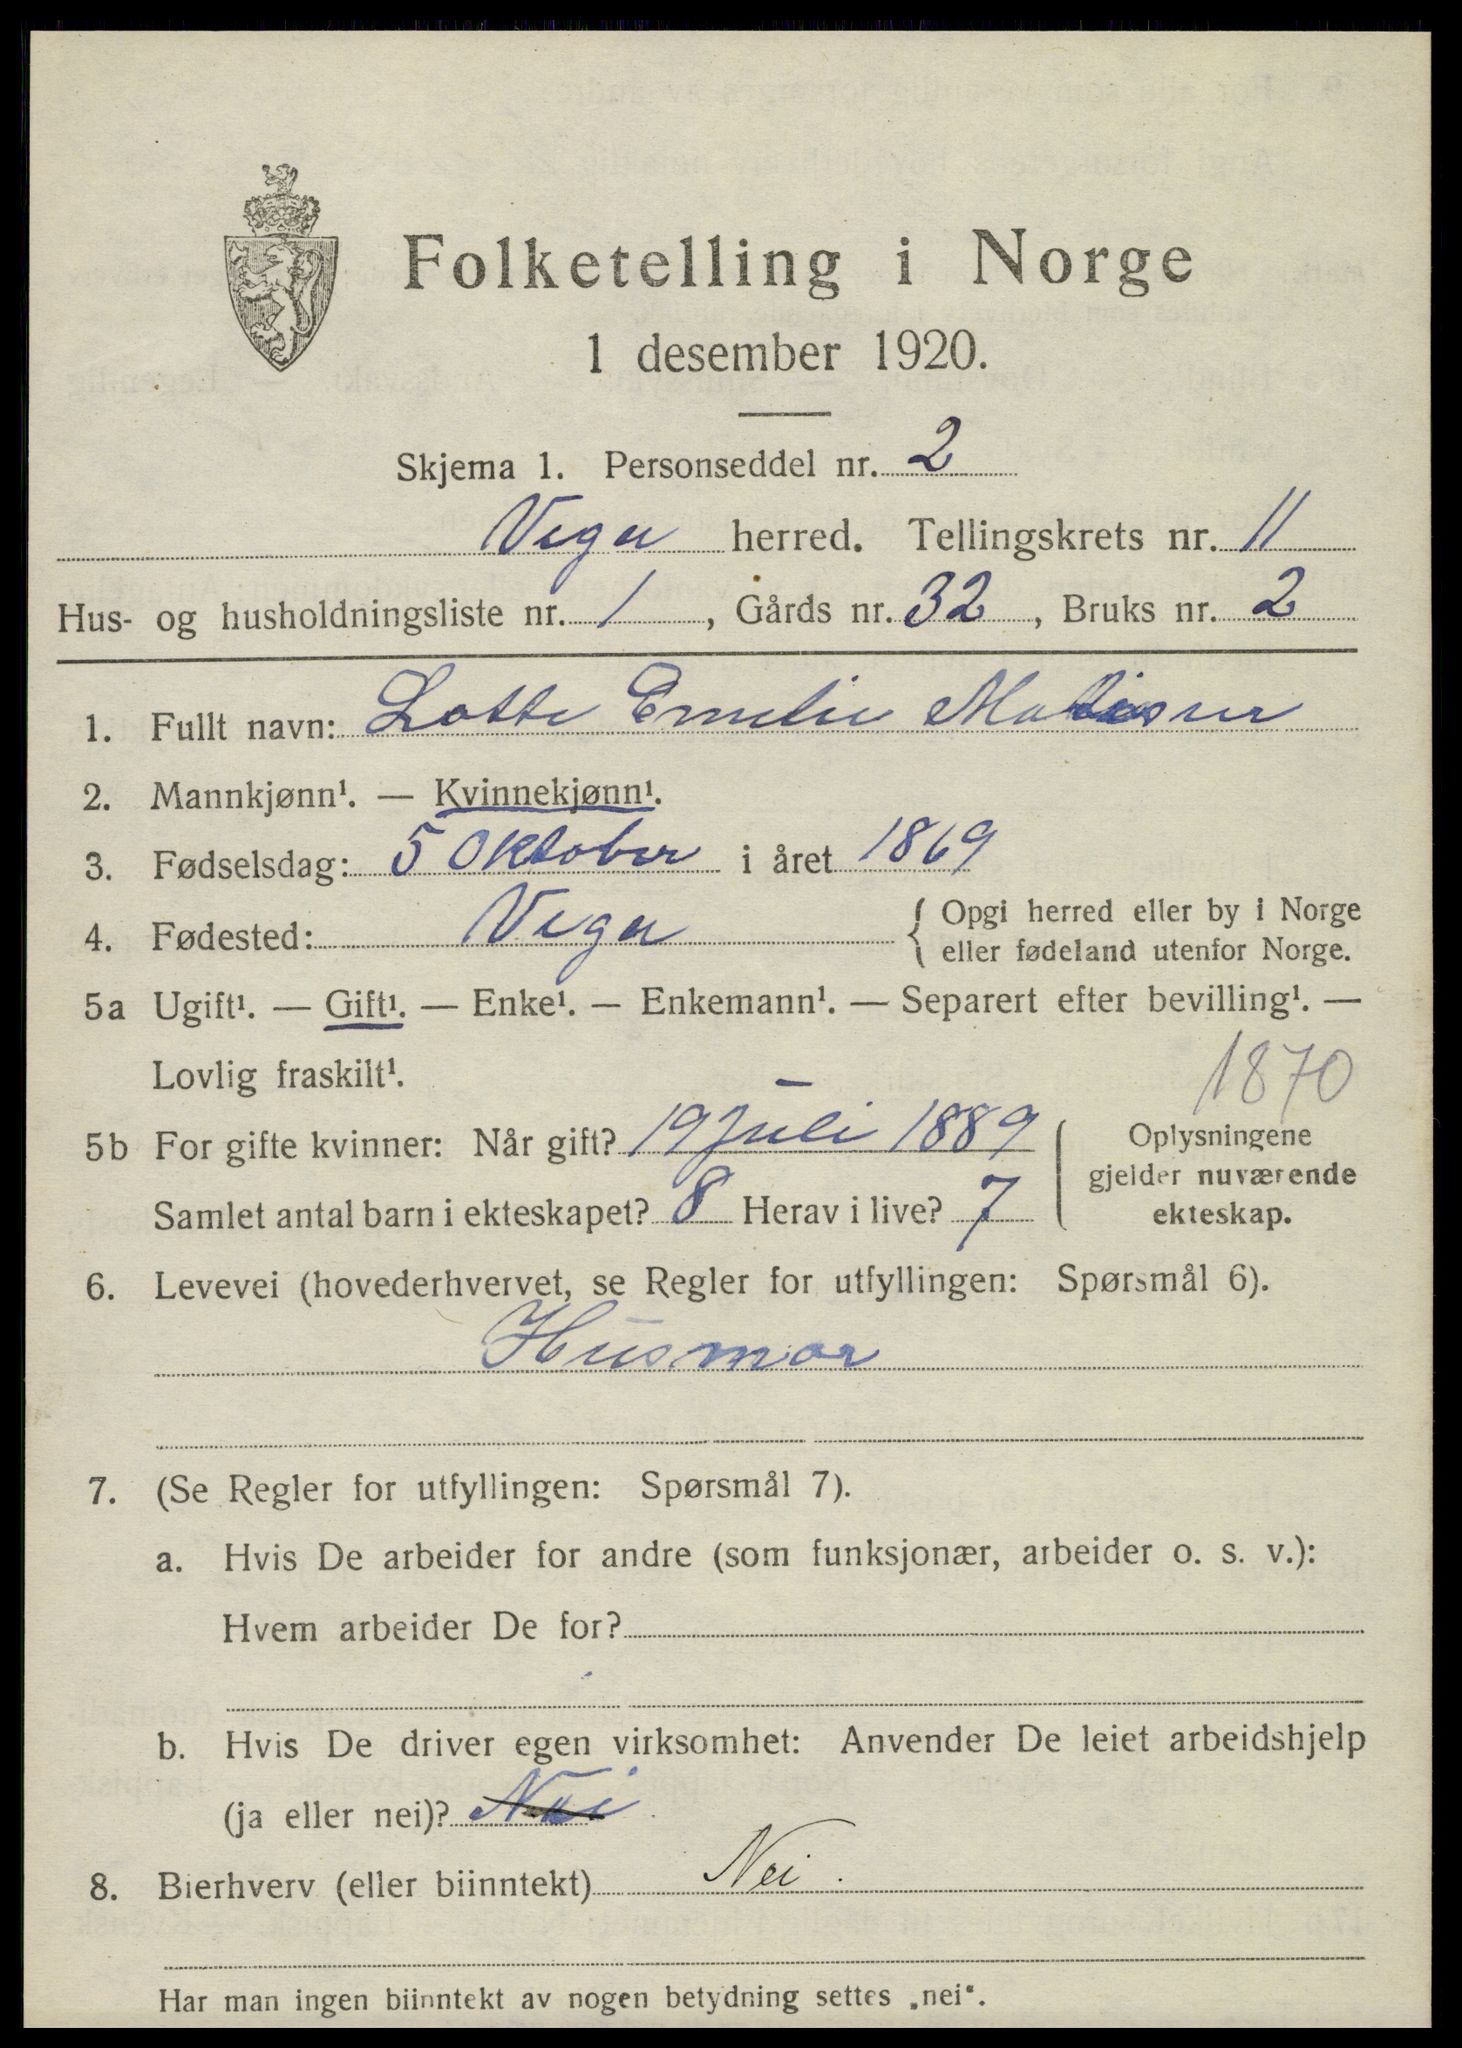 Folketelling i Norge
1 desember 1920.
Skjema 1. Personseddel nr. 2
Vega herred. Tellingskrets nr. 11
Hus- og husholdningsliste nr. 1, Gårds nr. 32, Bruks nr. 2
1. Fullt navn: Lotte Emelie
2. Mannkjønn¹. — Kvinnekjønn¹.
3. Fødselsdag: 5 Oktober i året 1869
4. Fødested: Vega { Opgi herred eller by i Norge
eller fødeland utenfor Norge.
5a Ugift¹. — Gift¹. — Enke¹. — Enkemann¹. — Separert efter bevilling¹. —
Lovlig fraskilt¹.
1870
5b For gifte kvinner: Når gift? 19 Juli 1889
Samlet antal barn i ekteskapet? 8 Herav i live? 7
{ Oplysningene
gjelder nuværende
ekteskap.
6. Levevei (hovederhvervet, se Regler for utfyllingen: Spørsmål 6).
Husmor
7. (Se Regler for utfyllingen: Spørsmål 7).
a. Hvis De arbeider for andre (som funksjonær, arbeider o. s. v.):
Hvem arbeider De for?
b. Hvis De driver egen virksomhet: Anvender De leiet arbeidshjelp
(ja eller nei)? Nei
8. Bierhverv (eller biinntekt) Nei.
Har man ingen biinntekt av nogen betydning settes „nei“.